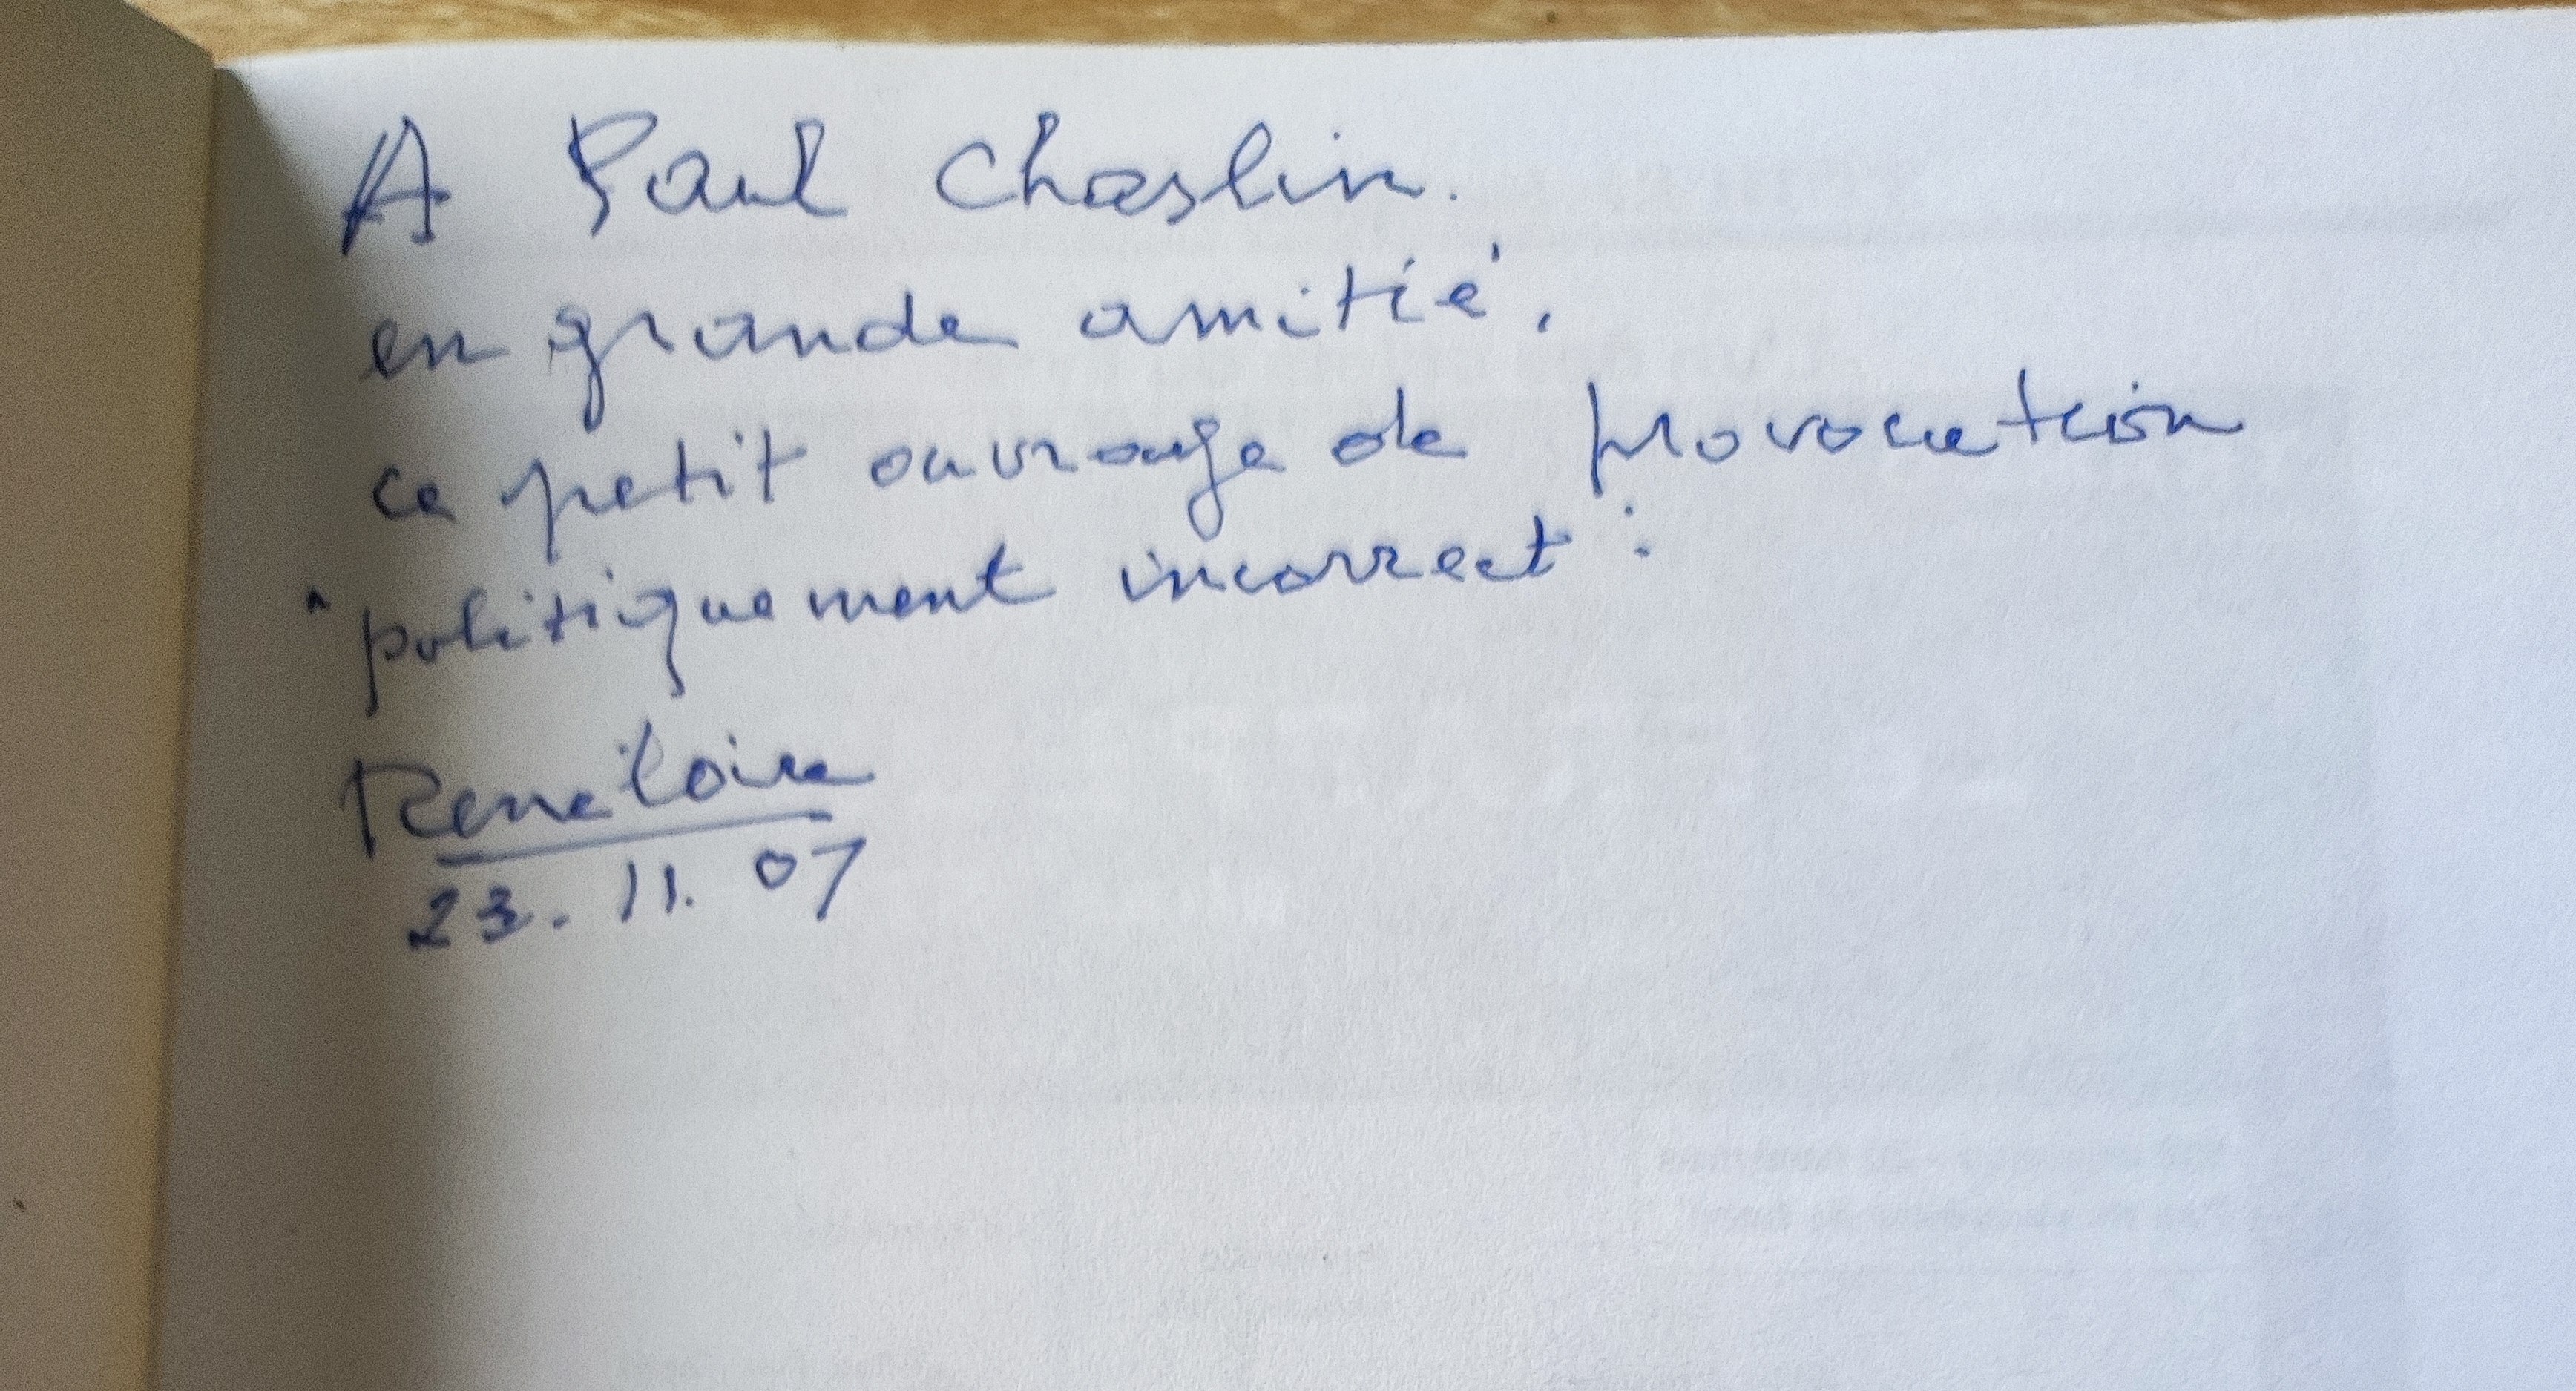 A Paul Chaslin.
en grande amitié,
ce petit ouvrage de provocation
"politiquement incorrect":
René Loire
23. 11. 07